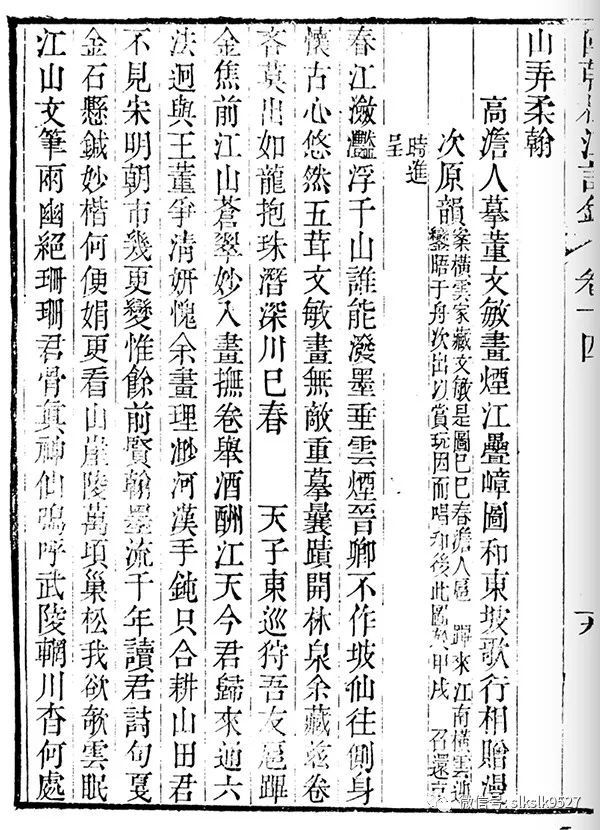 卷十四
山弄柔翰
高澹人摹董文敏畫煙江疊嶂圖和東坡歌行相贈漫
次原韻
案橫雲家藏文敏是圖己巳春澹人扈 蹕來江南橫雲
晤于舟次出以賞玩因而唱和後此圖於甲戌 召還京
時進
呈
春江瀲灩浮千山誰能潑墨垂雲煙晉卿不作坡仙往側身
懷古心悠然五茸文敏畫無敵重摹曩蹟開林泉余藏茲卷
吝莫出如龍抱珠潛深川巳春 天子東巡狩吾友扈蹕
金焦前江山蒼翠妙入畫撫卷舉酒酬江天今君歸來通六
法迥與王董爭淸妍愧余畫理渺河漢手鈍只合耕山田君
不見宋明朝市幾更變惟餘前賢翰墨流千年讀君詩句戛
金石懸鍼妙楷何便娟更看山崖陵萬項巢松我欲欹雲眠
江山文筆兩幽絕珊珊君骨眞神仙嗚呼武陵輞川杳何處
微信号: slkslk9527